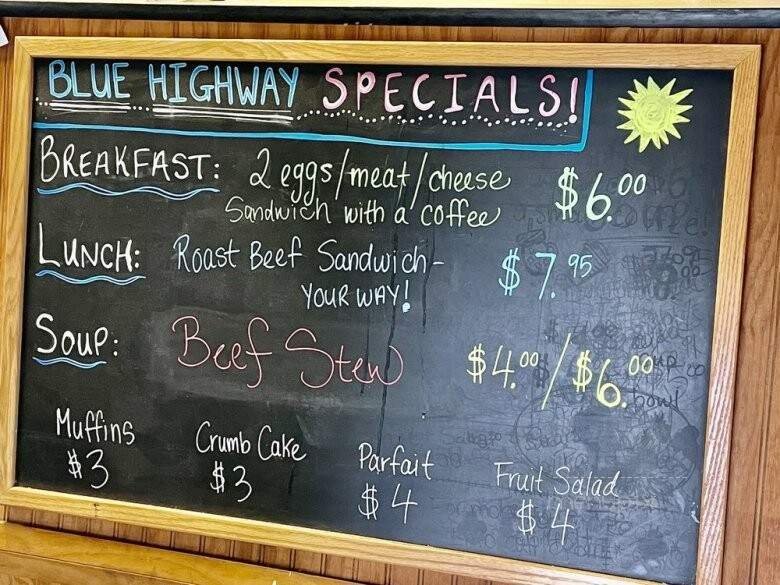 BLUE HIGHWAY SPECIALS!
BREAKFAST: 2 eggs/meat/cheese $6.00
Sandwich with a coffee
LUNCH: Roast Beef Sandwich- $7.95
YOUR WAY!
Soup: Beef Stew $4.00/$6.00
bowl
Muffins Crumb Cake Parfait Fruit Salad
$3 $3 $4 $4